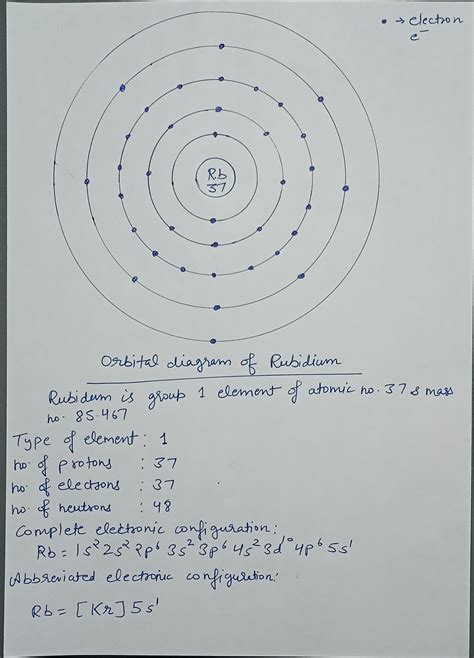 • → electron
e⁻
Rb
37
Orbital diagram of Rubidium
Rubidum is group 1 element of atomic no. 37 & mass
no. 85.467
Type of element : 1
no. of protons : 37
no. of electrons : 37
no. of neutrons : 48
Complete electronic configuration:
Rb = 1s² 2s² 2p⁶ 3s² 3p⁶ 4s² 3d¹⁰ 4p⁶ 5s¹
Abbreviated electronic configuration:
Rb = [Kr] 5s¹